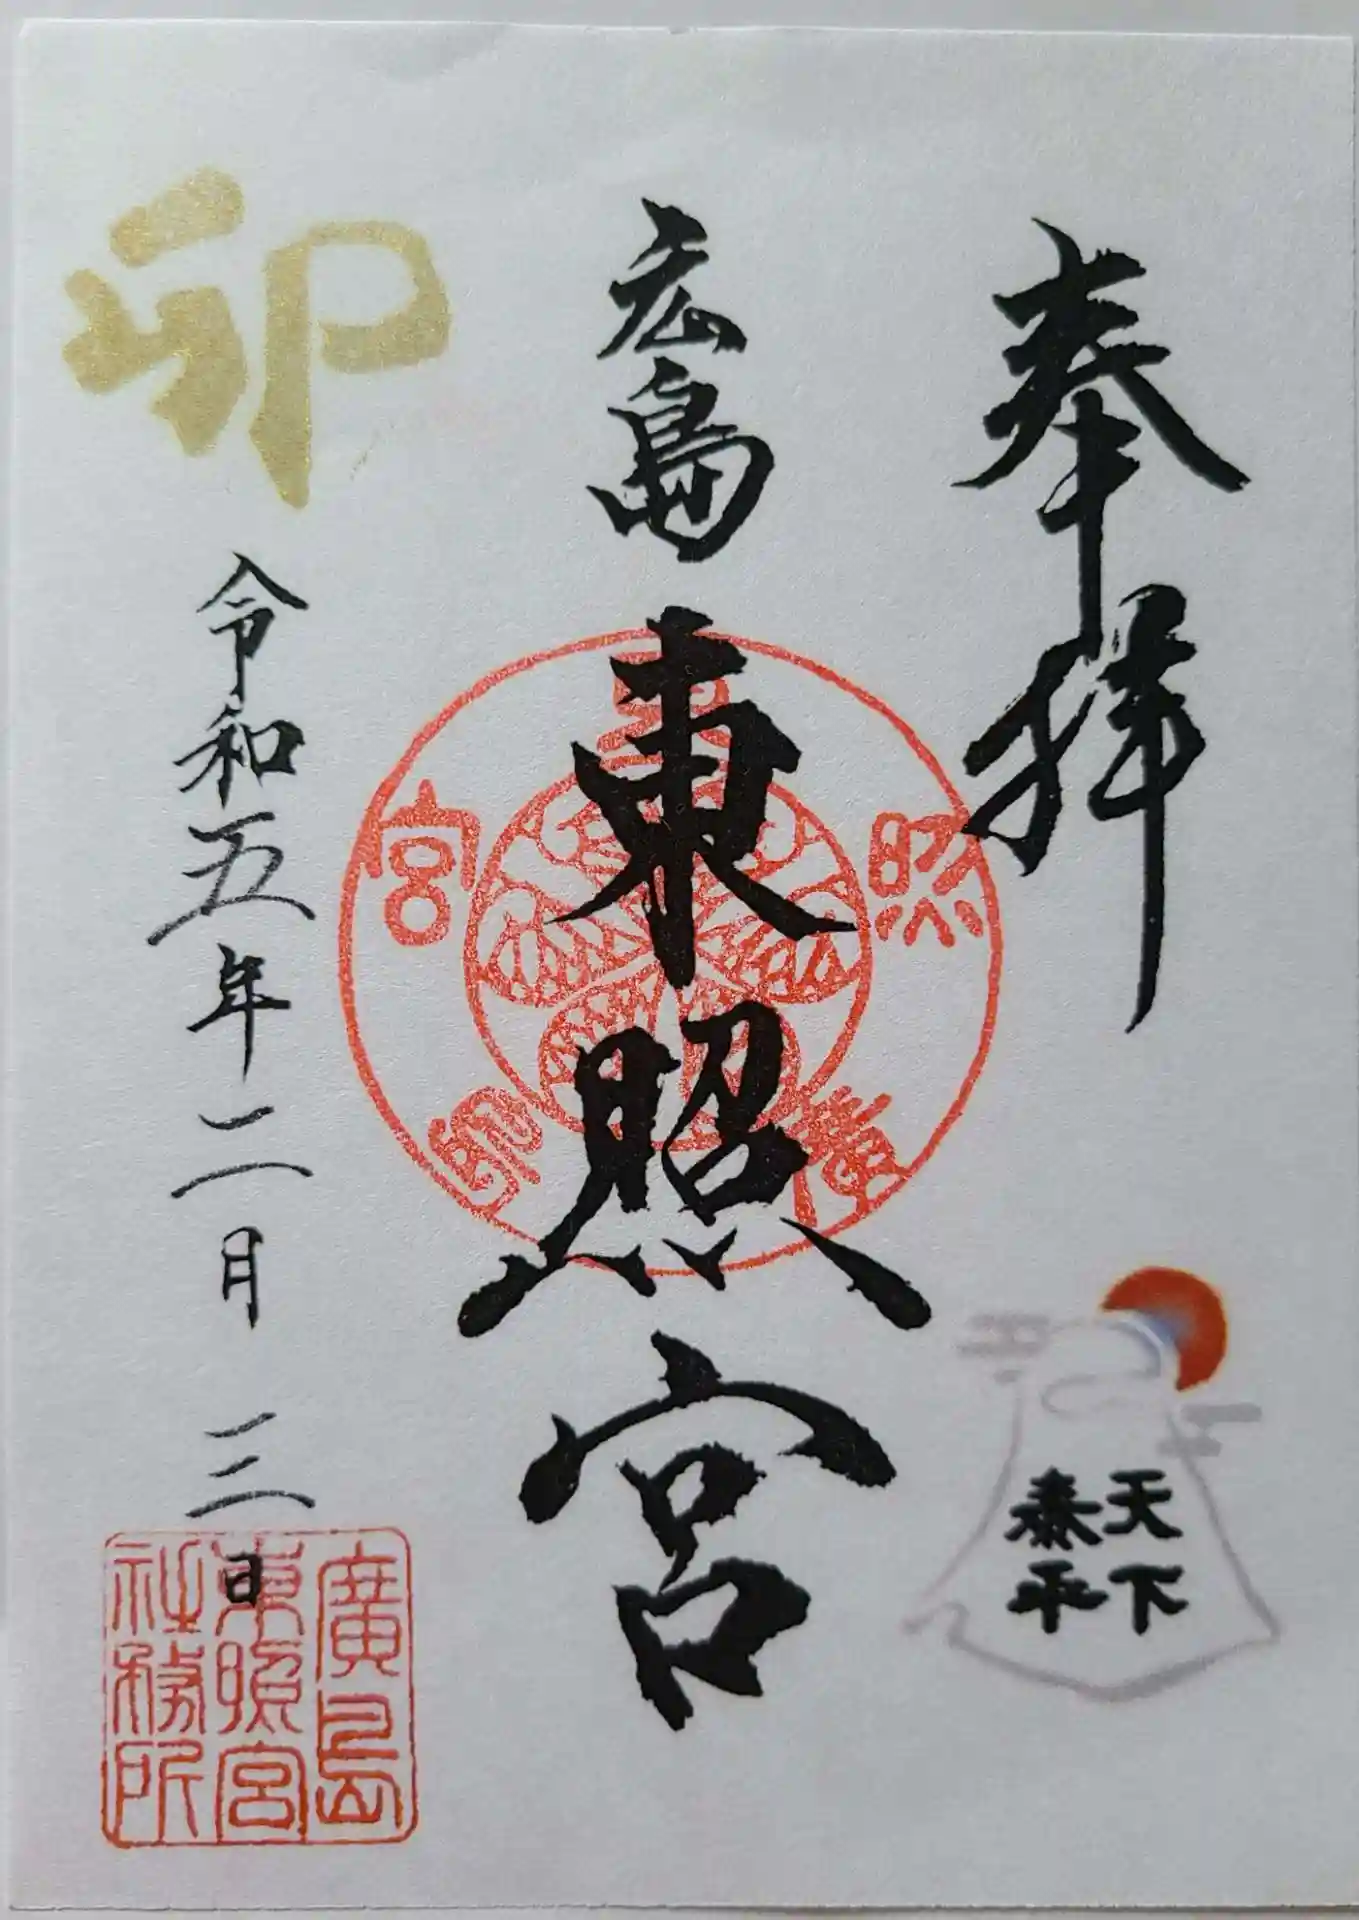 奉拝
天下
泰平
広島
東照宮
東照御璽宮
卯
令和五年二月三日
廣島
東照宮
社務所